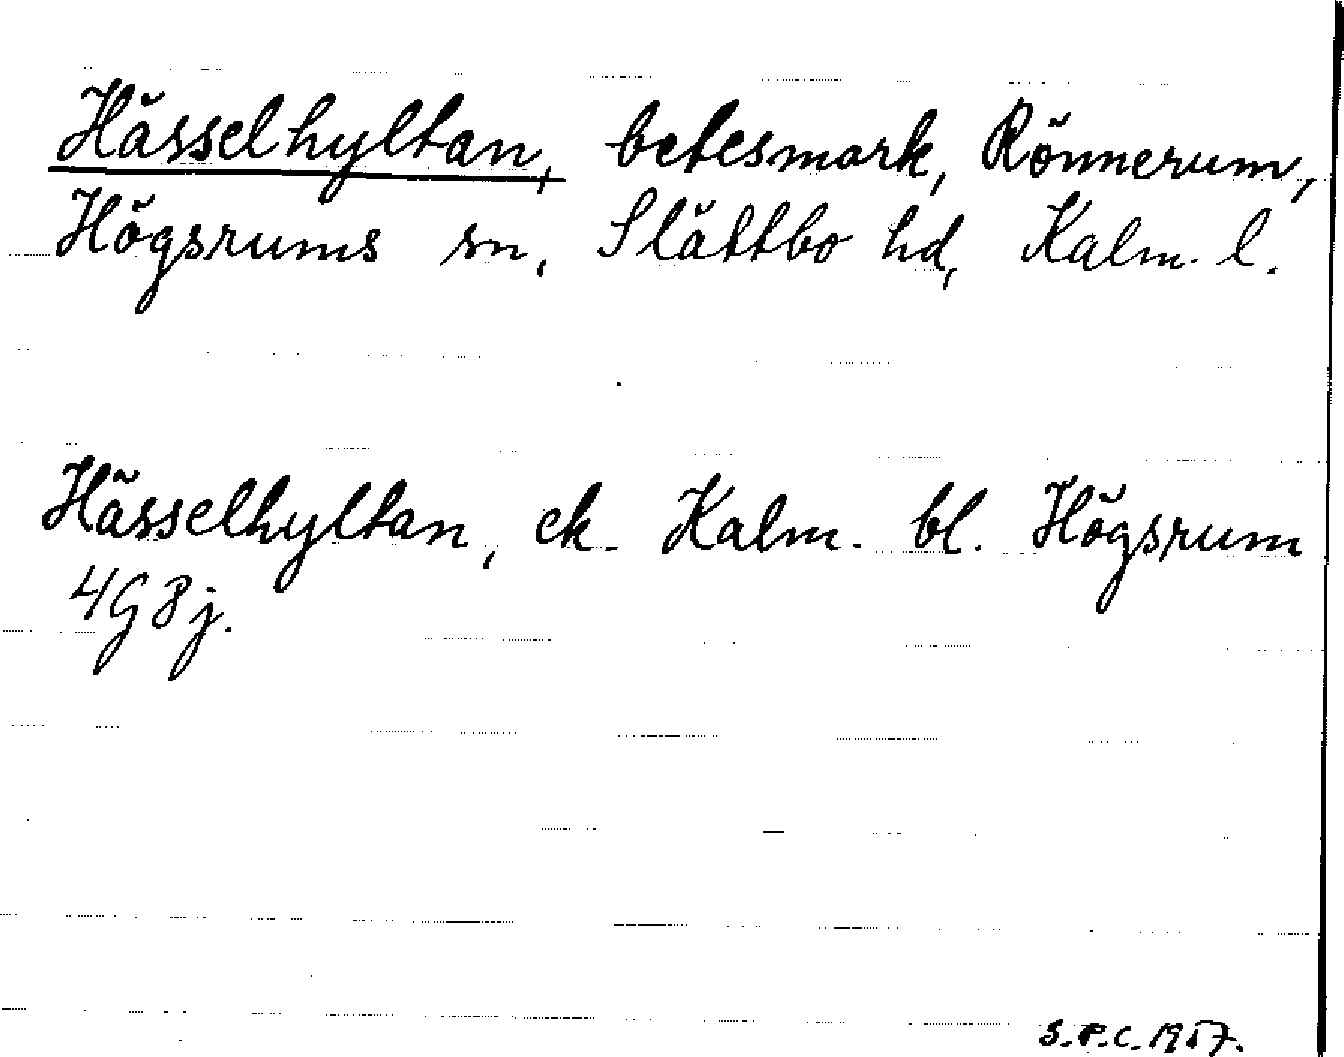 Hässelhyltan, betesmark, Rönnerum,
Högsrums sn, Slättbo hd, Kalm. l.
Hässelhyltan, ek. Kalm. bl. Högsrum
4G8j.
S.P.C. 1957.